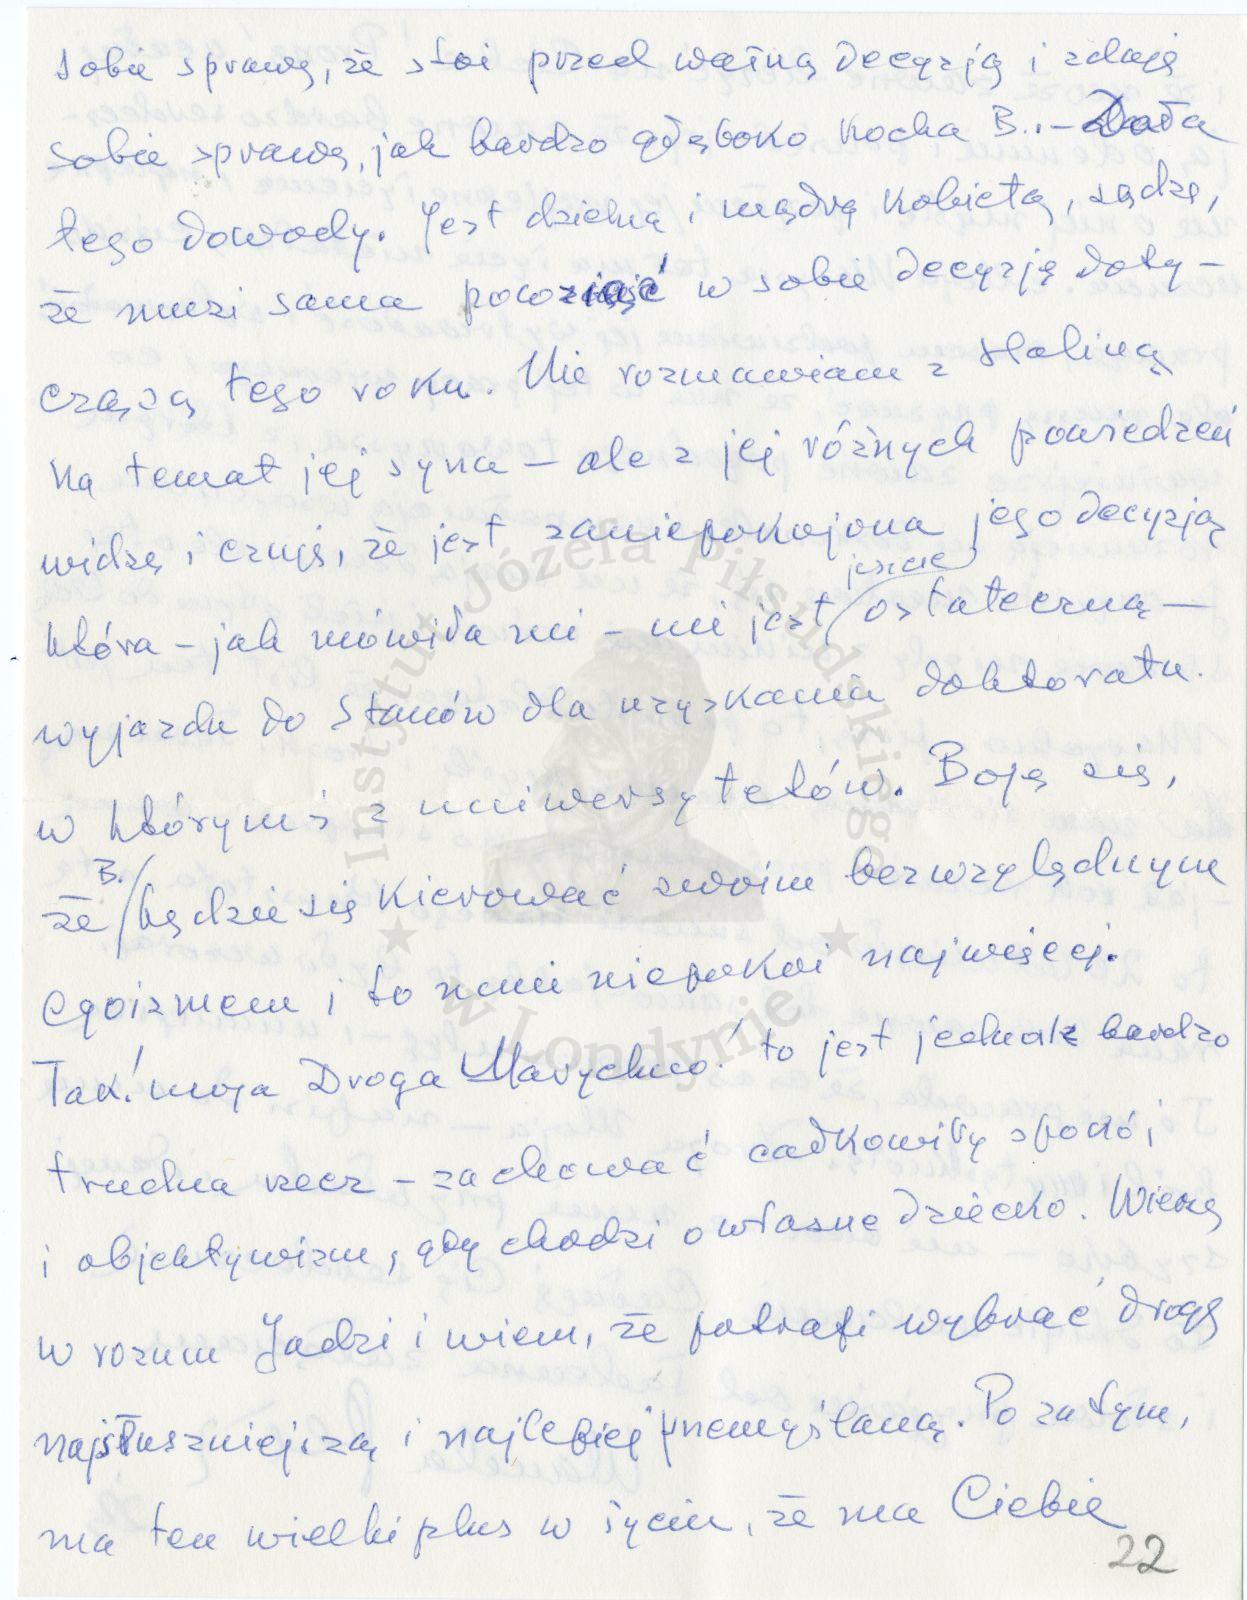 sobie sprawę, że stoi przed ważną decyzją i zdaję
sobie sprawę, jak bardzo głęboko kocha B.. – Dała
tego dowody. Jest dzielną i mądrą kobietą, sądzę,
że musi sama powziąść w sobie decyzję doty-
czącą tego roku. Nie rozmawiam z Haliną
na temat jej syna – ale z jej różnych powiedzeń
widzę i czuję, że jest zaniepokojona jego decyzją
która – jak mówiła mi – nie jest / jeszcze ostateczną –
wyjazdu do Stanów dla uzyskania doktoratu.
w którymś z uniwersytetów. Boję się,
że / B. będzie się kierować swoim bezwzględnym
egoizmem i to mnie niepokoi najwięcej.
Tak! moja Droga Marychno! to jest jednak bardzo
trudna rzecz – zachować całkowity spokój
i objektywizm, gdy chodzi o własne dziecko. Wierzę
w rozum Jadzi i wiem, że potrafi wybrać drogę
najsłuszniejszą i najlepiej przemyślaną. Po za tym,
ma ten wielki plus w życiu, że ma Ciebie
22
Instytut Józefa Piłsudskiego
w Londynie